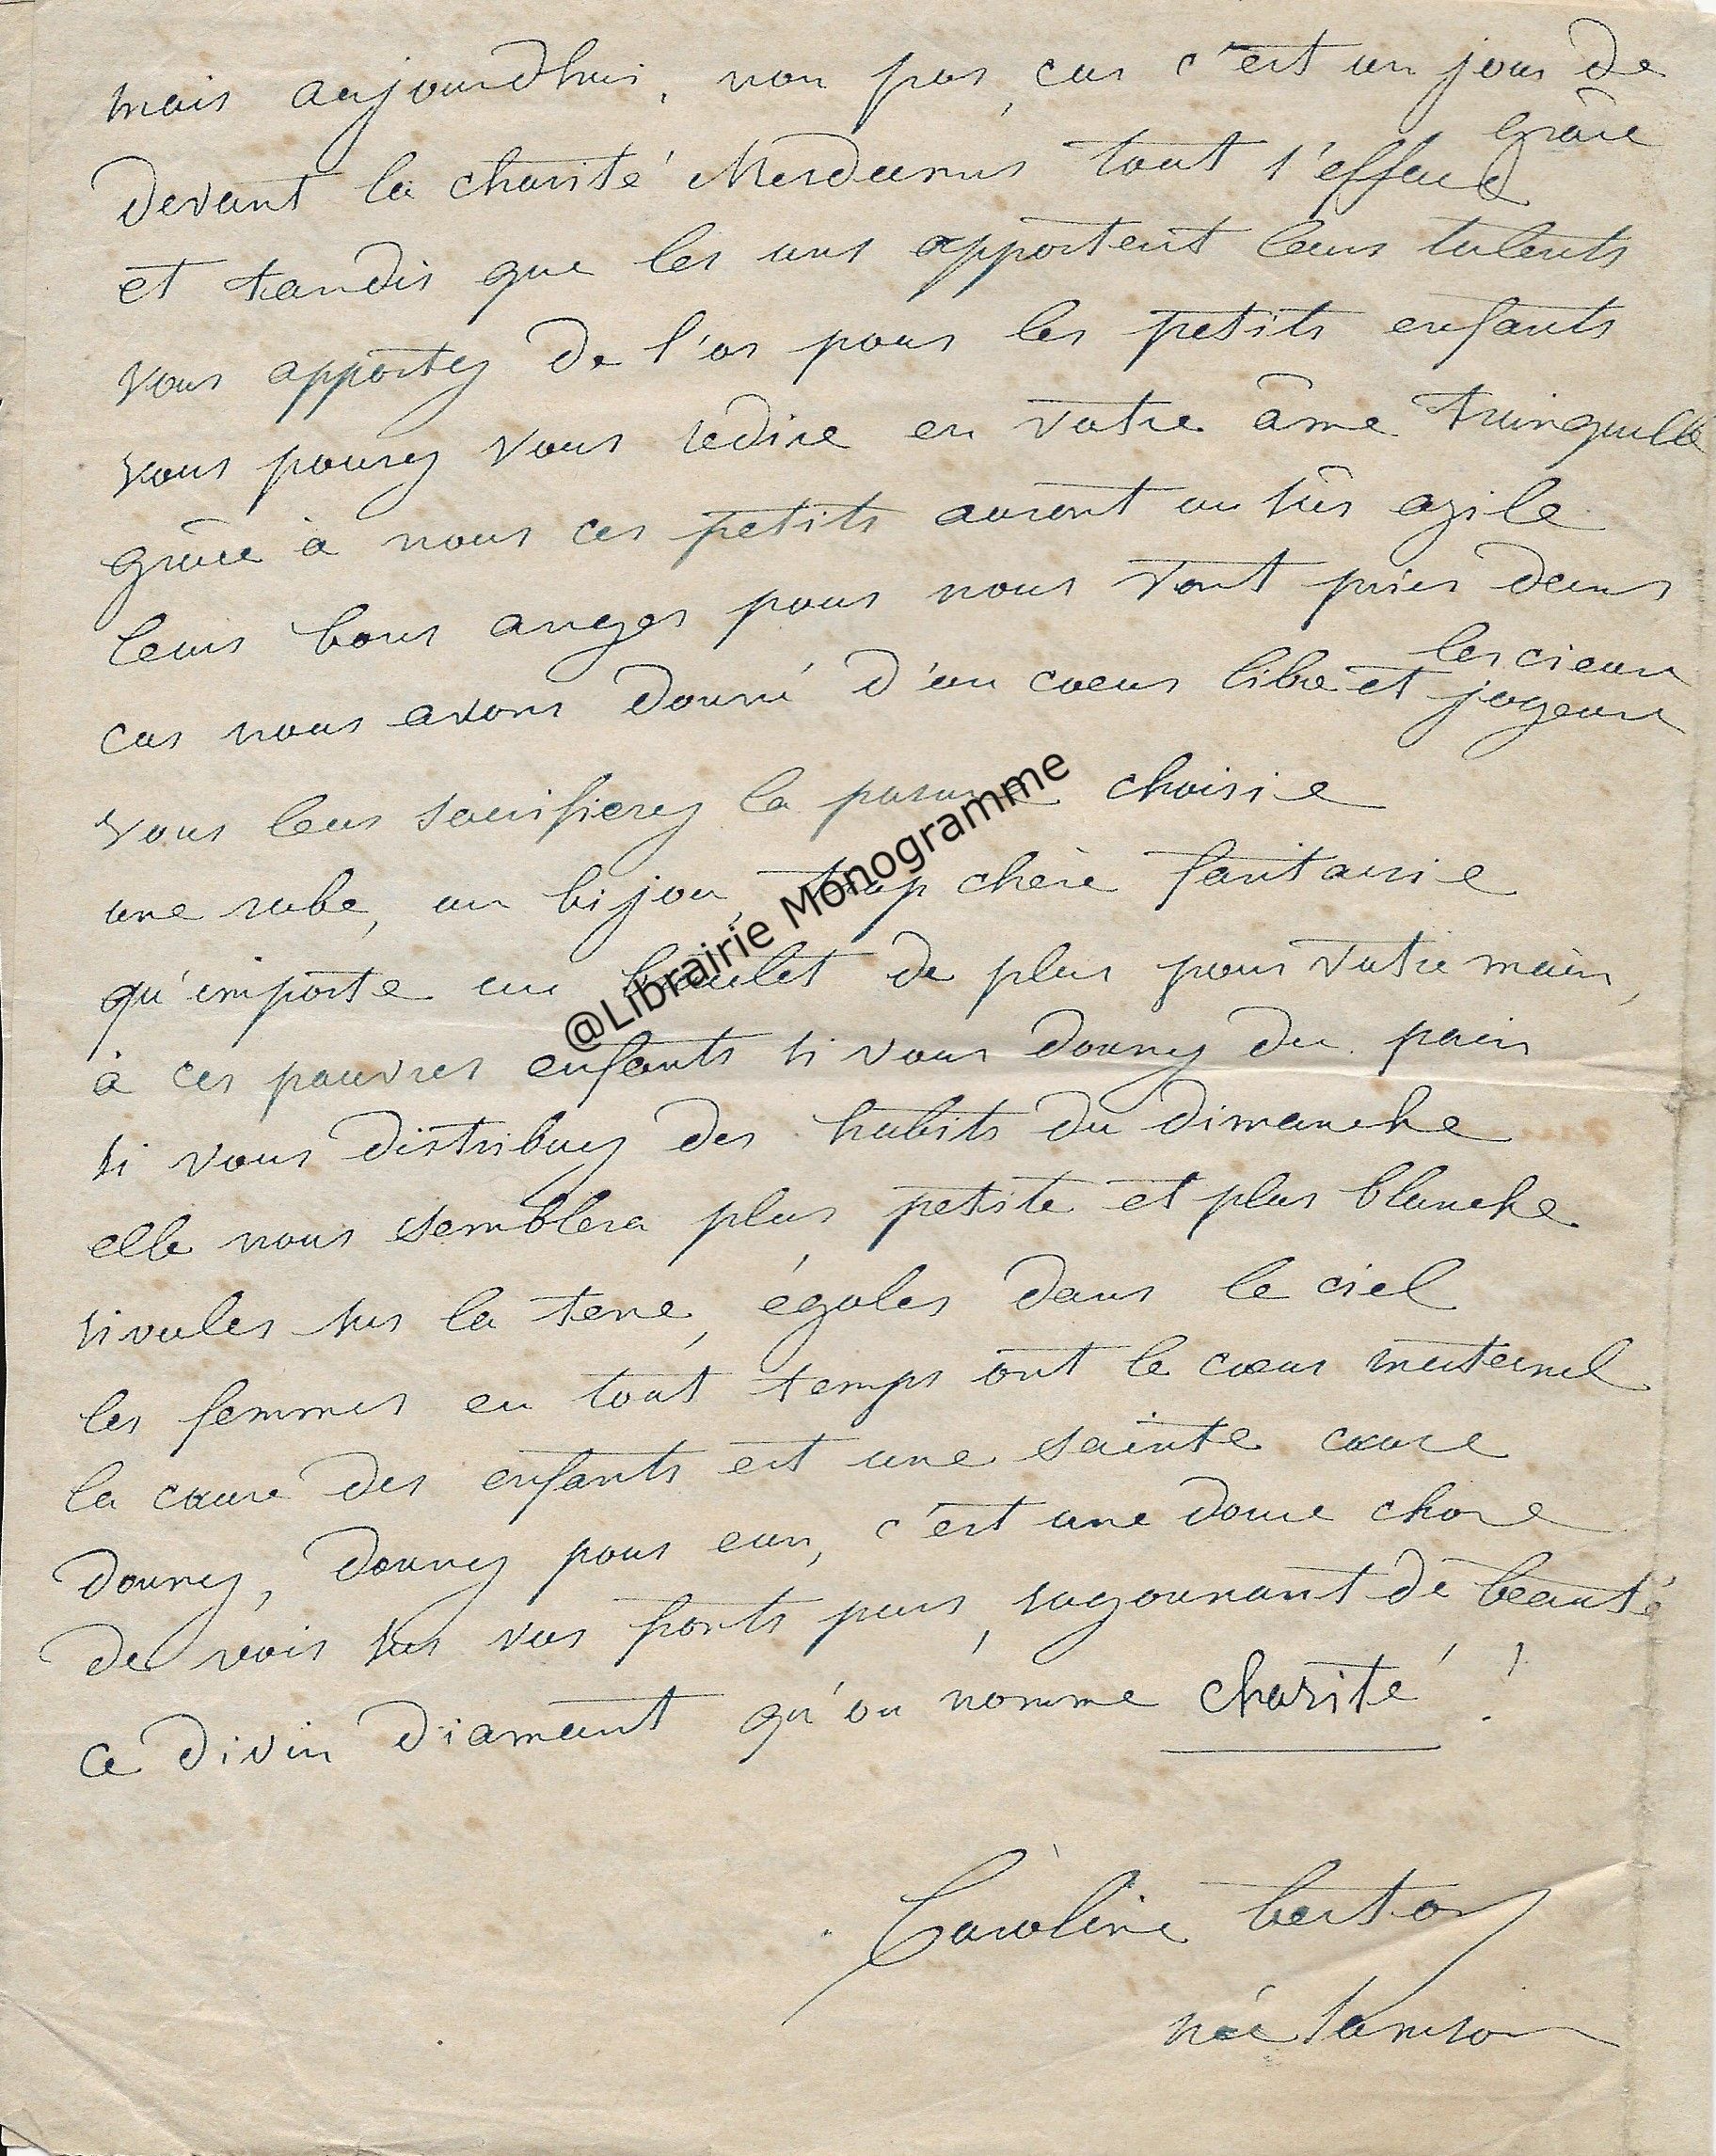 mais aujourdhui, non pas, car c'est un jour de
grâce
devant la charité Mesdames tout s'efface
et tandis que les uns apportent leurs talents
vous apportez de l'or pour les petits enfants
vous pourez vous redire en votre âme tranquille
grâce à nous ces petits auront un sûr azile
leurs bons anges pour nous vont prier dans
les cieux
car nous avons donné d'un coeur libre et joyeux
vous leur sacrifierez la parure choisie
une robe, un bijou, trop chère fantaisie
qu'importe un bracelet de plus pour votre main,
à ces pauvres enfants si vous donnez du pain
si vous distribuez des habits du dimanche
elle nous semblera plus petite et plus blanche
rivales sur la terre, égales dans le ciel
les femmes en tout temps ont le coeur maternel
la cause des enfants est une sainte cause
donnez, donnez pour eux, c'est une douce chose
de voir sur vos fronts purs, rayonnant de beauté
ce divin diamant qu'on nomme charité !
Caroline Berton
née Samson
@Librairie Monogramme